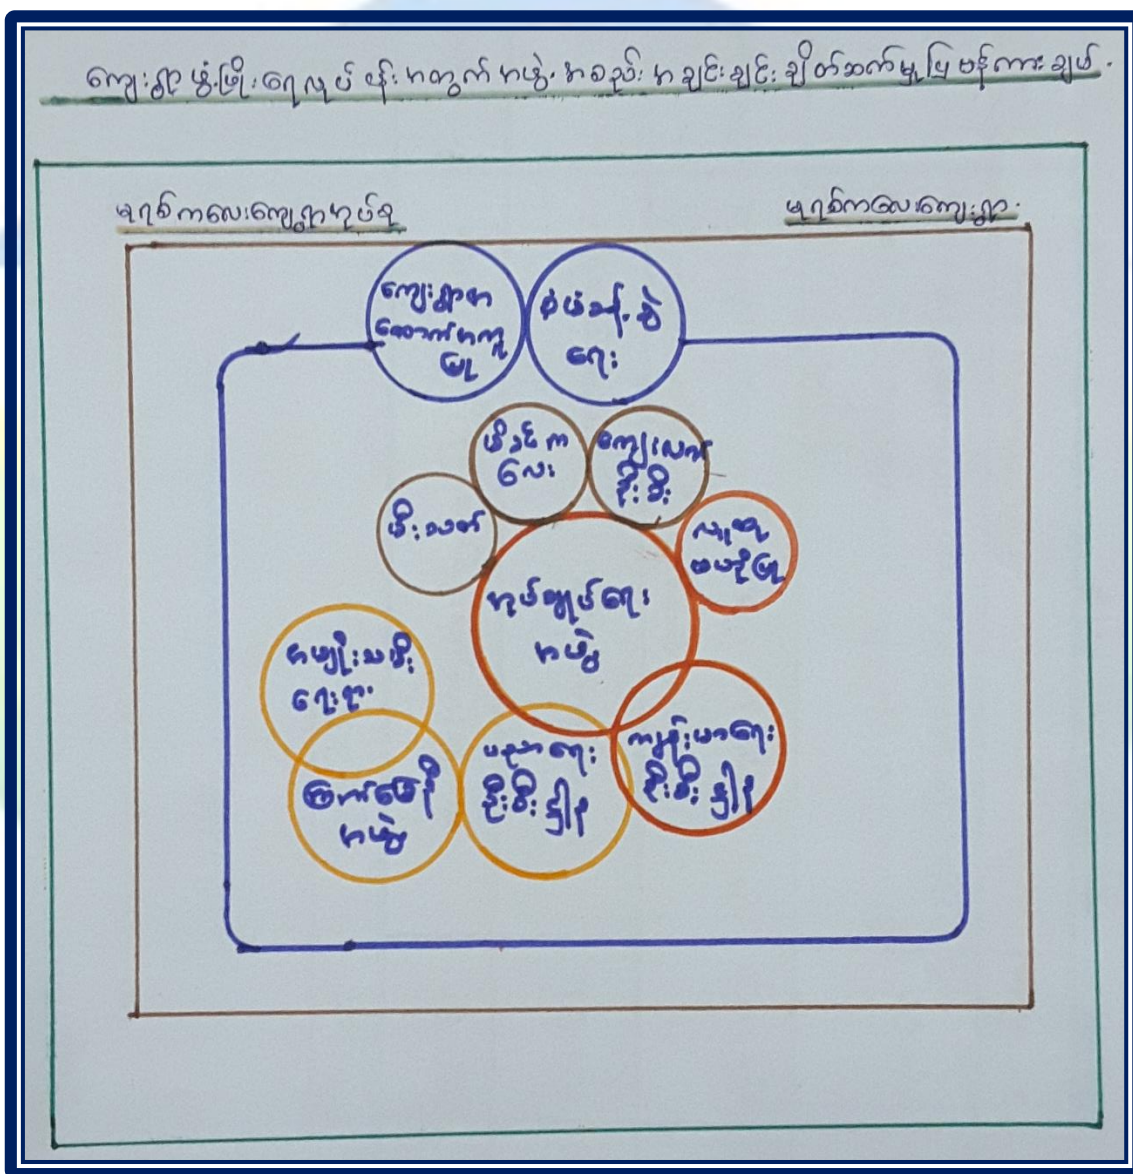 ကျေးရွာဖွံ့ဖြိုးရေလုပ်ငန်းအတွက်အဖွဲ့အစည်းအချင်းချင်းချိတ်ဆက်မှုပြဗန်ကားချပ်
မရစ်ကလေးကျေးရွာအုပ်စု
မရစ်ကလေးကျေးရွာ
ကျေးရွာအ
ထောက်အကူ
ပြု
စုံ
ရေး
မီးသတ်
ကလေး
ဦးစီး
လူထု
အုပ်ချုပ်ရေး
အဖွဲ့
အမျိုးသမီး
ရေးရာ
ကြက်ခြေနီ
အဖွဲ့
ပညာရေး
ဦးစီးဌာန
ကျန်းမာရေး
ဦးစီးဌာန